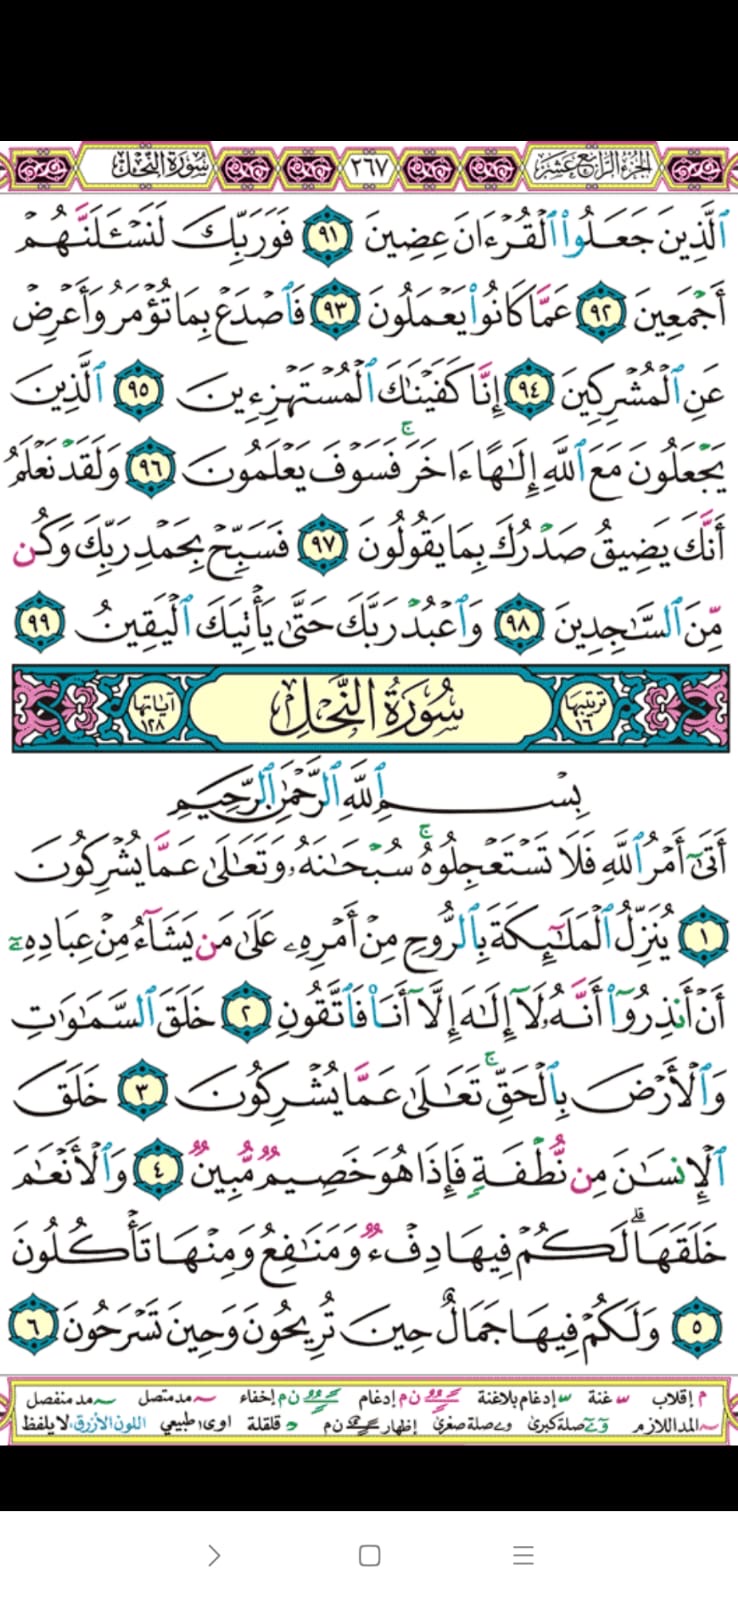 الجزء الرابع عشر ٢٦٧ سورة النحل
ٱلَّذِينَ جَعَلُوا۟ ٱلْقُرْءَانَ عِضِينَ ٩١ فَوَرَبِّكَ لَنَسْـَٔلَنَّهُمْ
أَجْمَعِينَ ٩٢ عَمَّا كَانُوا۟ يَعْمَلُونَ ٩٣ فَٱصْدَعْ بِمَا تُؤْمَرُ وَأَعْرِضْ
عَنِ ٱلْمُشْرِكِينَ ٩٤ إِنَّا كَفَيْنَـٰكَ ٱلْمُسْتَهْزِءِينَ ٩٥ ٱلَّذِينَ
يَجْعَلُونَ مَعَ ٱللَّهِ إِلَـٰهًا ءَاخَرَ ۚ فَسَوْفَ يَعْلَمُونَ ٩٦ وَلَقَدْ نَعْلَمُ
أَنَّكَ يَضِيقُ صَدْرُكَ بِمَا يَقُولُونَ ٩٧ فَسَبِّحْ بِحَمْدِ رَبِّكَ وَكُن
مِّنَ ٱلسَّـٰجِدِينَ ٩٨ وَٱعْبُدْ رَبَّكَ حَتَّىٰ يَأْتِيَكَ ٱلْيَقِينُ ٩٩
ترتيبها ١٦ سُورَةُ النَّحْلِ آياتها ١٢٨
بِسْمِ ٱللَّهِ ٱلرَّحْمَـٰنِ ٱلرَّحِيمِ
أَتَىٰٓ أَمْرُ ٱللَّهِ فَلَا تَسْتَعْجِلُوهُ ۚ سُبْحَـٰنَهُۥ وَتَعَـٰلَىٰ عَمَّا يُشْرِكُونَ
١ يُنَزِّلُ ٱلْمَلَـٰٓئِكَةَ بِٱلرُّوحِ مِنْ أَمْرِهِۦ عَلَىٰ مَن يَشَآءُ مِنْ عِبَادِهِۦٓ
أَنْ أَنذِرُوٓا۟ أَنَّهُۥ لَآ إِلَـٰهَ إِلَّآ أَنَا۠ فَٱتَّقُونِ ٢ خَلَقَ ٱلسَّمَـٰوَٰتِ
وَٱلْأَرْضَ بِٱلْحَقِّ ۚ تَعَـٰلَىٰ عَمَّا يُشْرِكُونَ ٣ خَلَقَ
ٱلْإِنسَـٰنَ مِن نُّطْفَةٍ فَإِذَا هُوَ خَصِيمٌ مُّبِينٌ ٤ وَٱلْأَنْعَـٰمَ
خَلَقَهَا ۗ لَكُمْ فِيهَا دِفْءٌ وَمَنَـٰفِعُ وَمِنْهَا تَأْكُلُونَ
٥ وَلَكُمْ فِيهَا جَمَالٌ حِينَ تُرِيحُونَ وَحِينَ تَسْرَحُونَ ٦
م إقلاب غنة إدغام بلاغنة ن م إدغام ن م إخفاء مد متصل مد منفصل
المد اللازم صلة كبرى صلة صغرى إظهار ن م قلقلة اوى طبيعي اللون الأزرق لا يلفظ